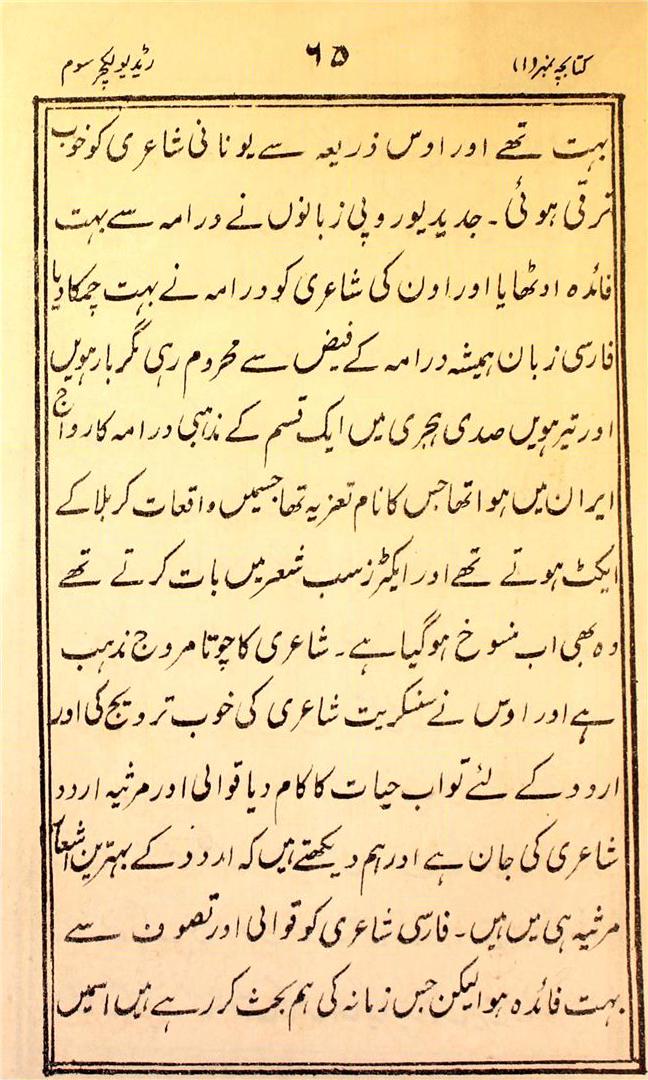 کتابچہ نمبر (۱) ۶۵ ریڈیو لیکچر سوم
بہت تھے اور اوس ذریعہ سے یونانی شاعری کو خوب
ترقی ہوئی۔ جدید یوروپی زبانوں نے درامہ سے بہت
فائدہ اوٹھایا اور اون کی شاعری کو درامہ نے بہت چمکا دیا
فارسی زبان ہمیشہ درامہ کے فیض سے محروم رہی مگر بارہویں
اور تیرہویں صدی ہجری میں ایک قسم کے مذہبی درامہ کا رواج
ایران میں ہوا تھا جس کا نام تعزیہ تھا جسیمں واقعات کربلا کے
ایکٹ ہوتے تھے اور ایکٹرز سب شعر میں بات کرتے تھے
وہ بھی اب منسوخ ہوگیا ہے۔ شاعری کا چوتا مروج مذہب
ہے اور اوس نے سنکریت شاعری کی خوب ترویج کی اور
اردو کے لئے تو اب حیات کا کام دیا قوالی اور مرثیہ اردو
شاعری کی جان ہے اور ہم دیکھتے ہیں کہ اردو کے بہترین اشعار
مرثیہ ہی میں ہیں۔ فارسی شاعری کو قوالی اور تصوف سے
بہت فائدہ ہوا لیکن جس زمانہ کی ہم بحث کر رہے ہیں اسمیں